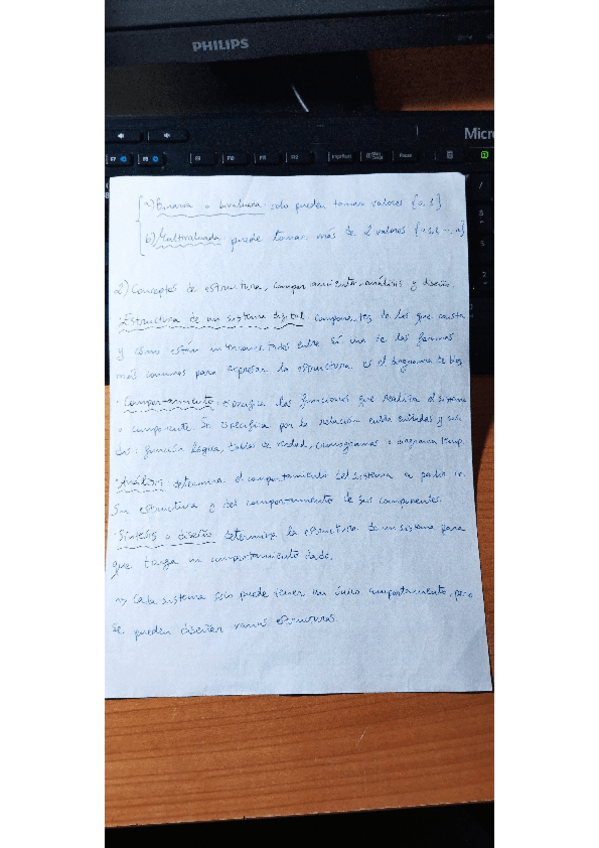 PHILIPS
Micr
F7
F8
F9
F10
F11
F12
Impr Pant
Pausa
a) Binaria o bivaluada: solo pueden tomar valores {0,1}
b) Multivaluada: puede tomar más de 2 valores
2) Conceptos de estructura, comportamiento, análisis y diseño.
· Estructura de un sistema digital: componentes de los que consta
y cómo están interconectados entre sí. una de las formas
más comunes para expresar la estructura es el diagrama de bloq
· Comportamiento: especifica las funciones que realiza el sistema
o componente. Se especifica por la relación entre entradas y sali
das: función lógica, tablas de verdad, cronogramas o diagrama temp.
· Análisis: determina el comportamiento del sistema a partir de
su estructura y del comportamiento de sus componentes.
· Síntesis o diseño: determina la estructura de un sistema para
que tenga un comportamiento dado.
Cada sistema solo puede tener un único comportamiento, pero
se pueden diseñar varias estructuras.